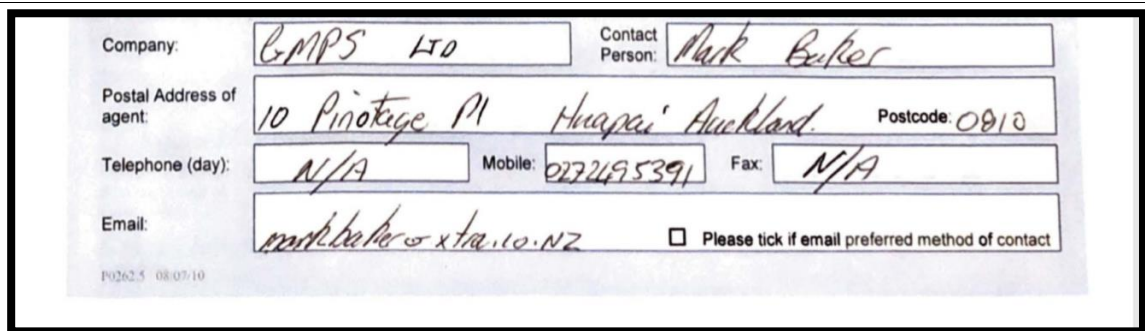 Company: GMPS LTD Contact Person: Mark Baker
Postal Address of agent: 10 Pinotage Pl Huapai Auckland. Postcode: 0810
Telephone (day): N/A Mobile: 0272495391 Fax: N/A
Email: markbaker@xtra.co.NZ Please tick if email preferred method of contact
P0262.5 08/07/10